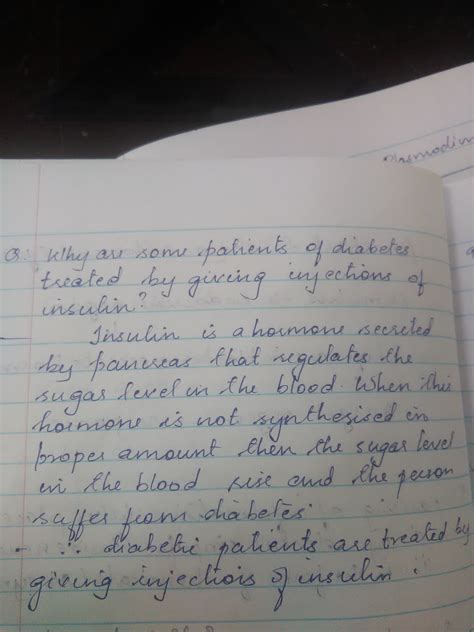 Plasmodium
Q: Why are some patients of diabetes
treated by giving injections of
insulin?
Insulin is a hormone secreted
by pancreas that regulates the
sugar level in the blood. When this
hormone is not synthesised in
proper amount then the sugar level
in the blood rise and the person
suffer from diabetes.
- ∴ diabetic patients are treated by
giving injections of insulin.